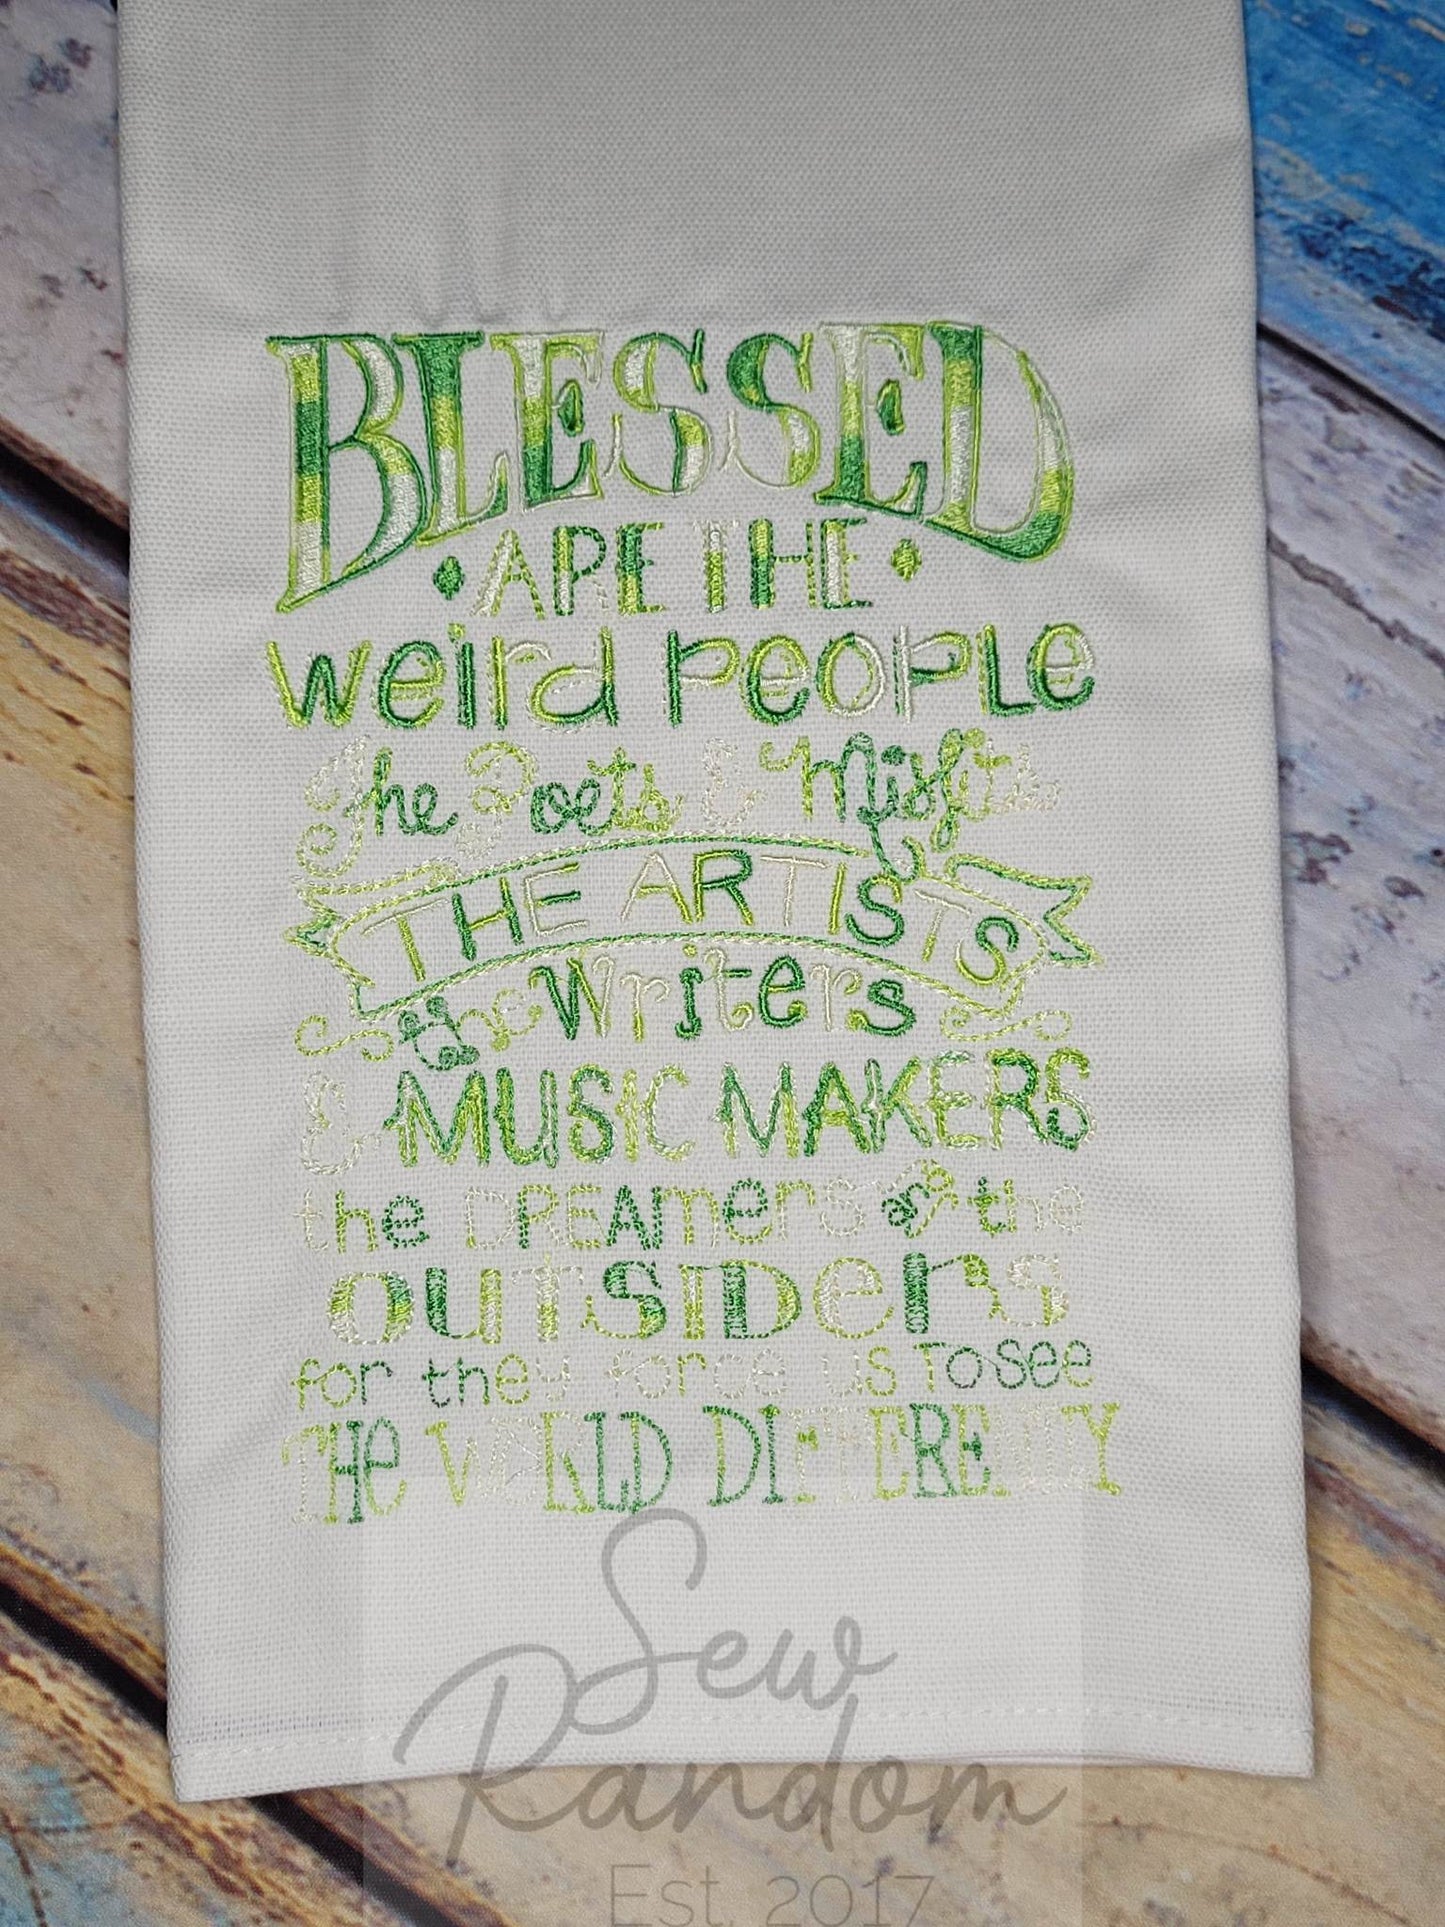 BLESSED
ARE THE
weird people
The Poets & Misfits
THE ARTISTS
the Writers
& MUSIC MAKERS
the DREAMERS and the
OUTSIDERS
for they force us to see
THE WORLD DIFFERENTLY
Sew
Random
Est. 2017